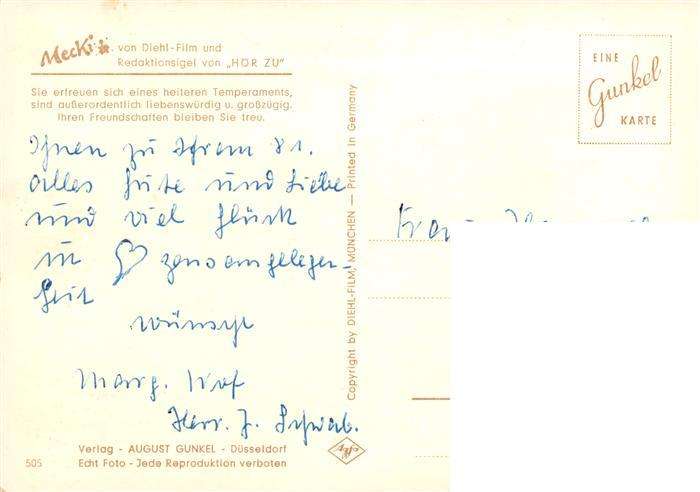 Mecki
von Diehl-Film und
Redaktionsigel von „HÖR ZU"
Sie erfreuen sich eines heiteren Temperaments,
sind außerordentlich liebenswürdig u. großzügig.
Ihren Freundschaften bleiben Sie treu.
Ihnen zu Ihrem 81.
alles Gute und Liebe
und viel Glück
in ♡ zensangelegen-
heit
wünscht
Marg.
Herr. J. Schwab.
Verlag - AUGUST GUNKEL - Düsseldorf
505 Echt Foto - Jede Reproduktion verboten
Copyright by DIEHL-FILM, MÜNCHEN — Printed in Germany
EINE
Gunkel
KARTE
Frau